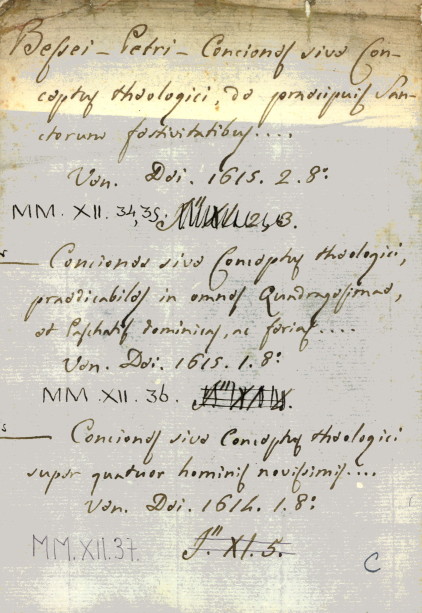 Bessei - Petri - Conciones sive Con-
ceptus theologici, de praecipuis San-
ctorum festivitatibus....
Ven. Dei. 1615. 2. 8º
MM. XII. 34, 35.
Conciones sive Conceptus theologici,
praedicabiles in omnes Quadragesimae,
et Paschatis dominicas, ac ferias....
Ven. Dei. 1615. 1. 8º
MM. XII. 36.
Conciones sive Conceptus theologici
super quatuor hominis novissimis....
Ven. Dei. 1614. 1. 8º
MM. XII. 37. J." XI. 5.
C